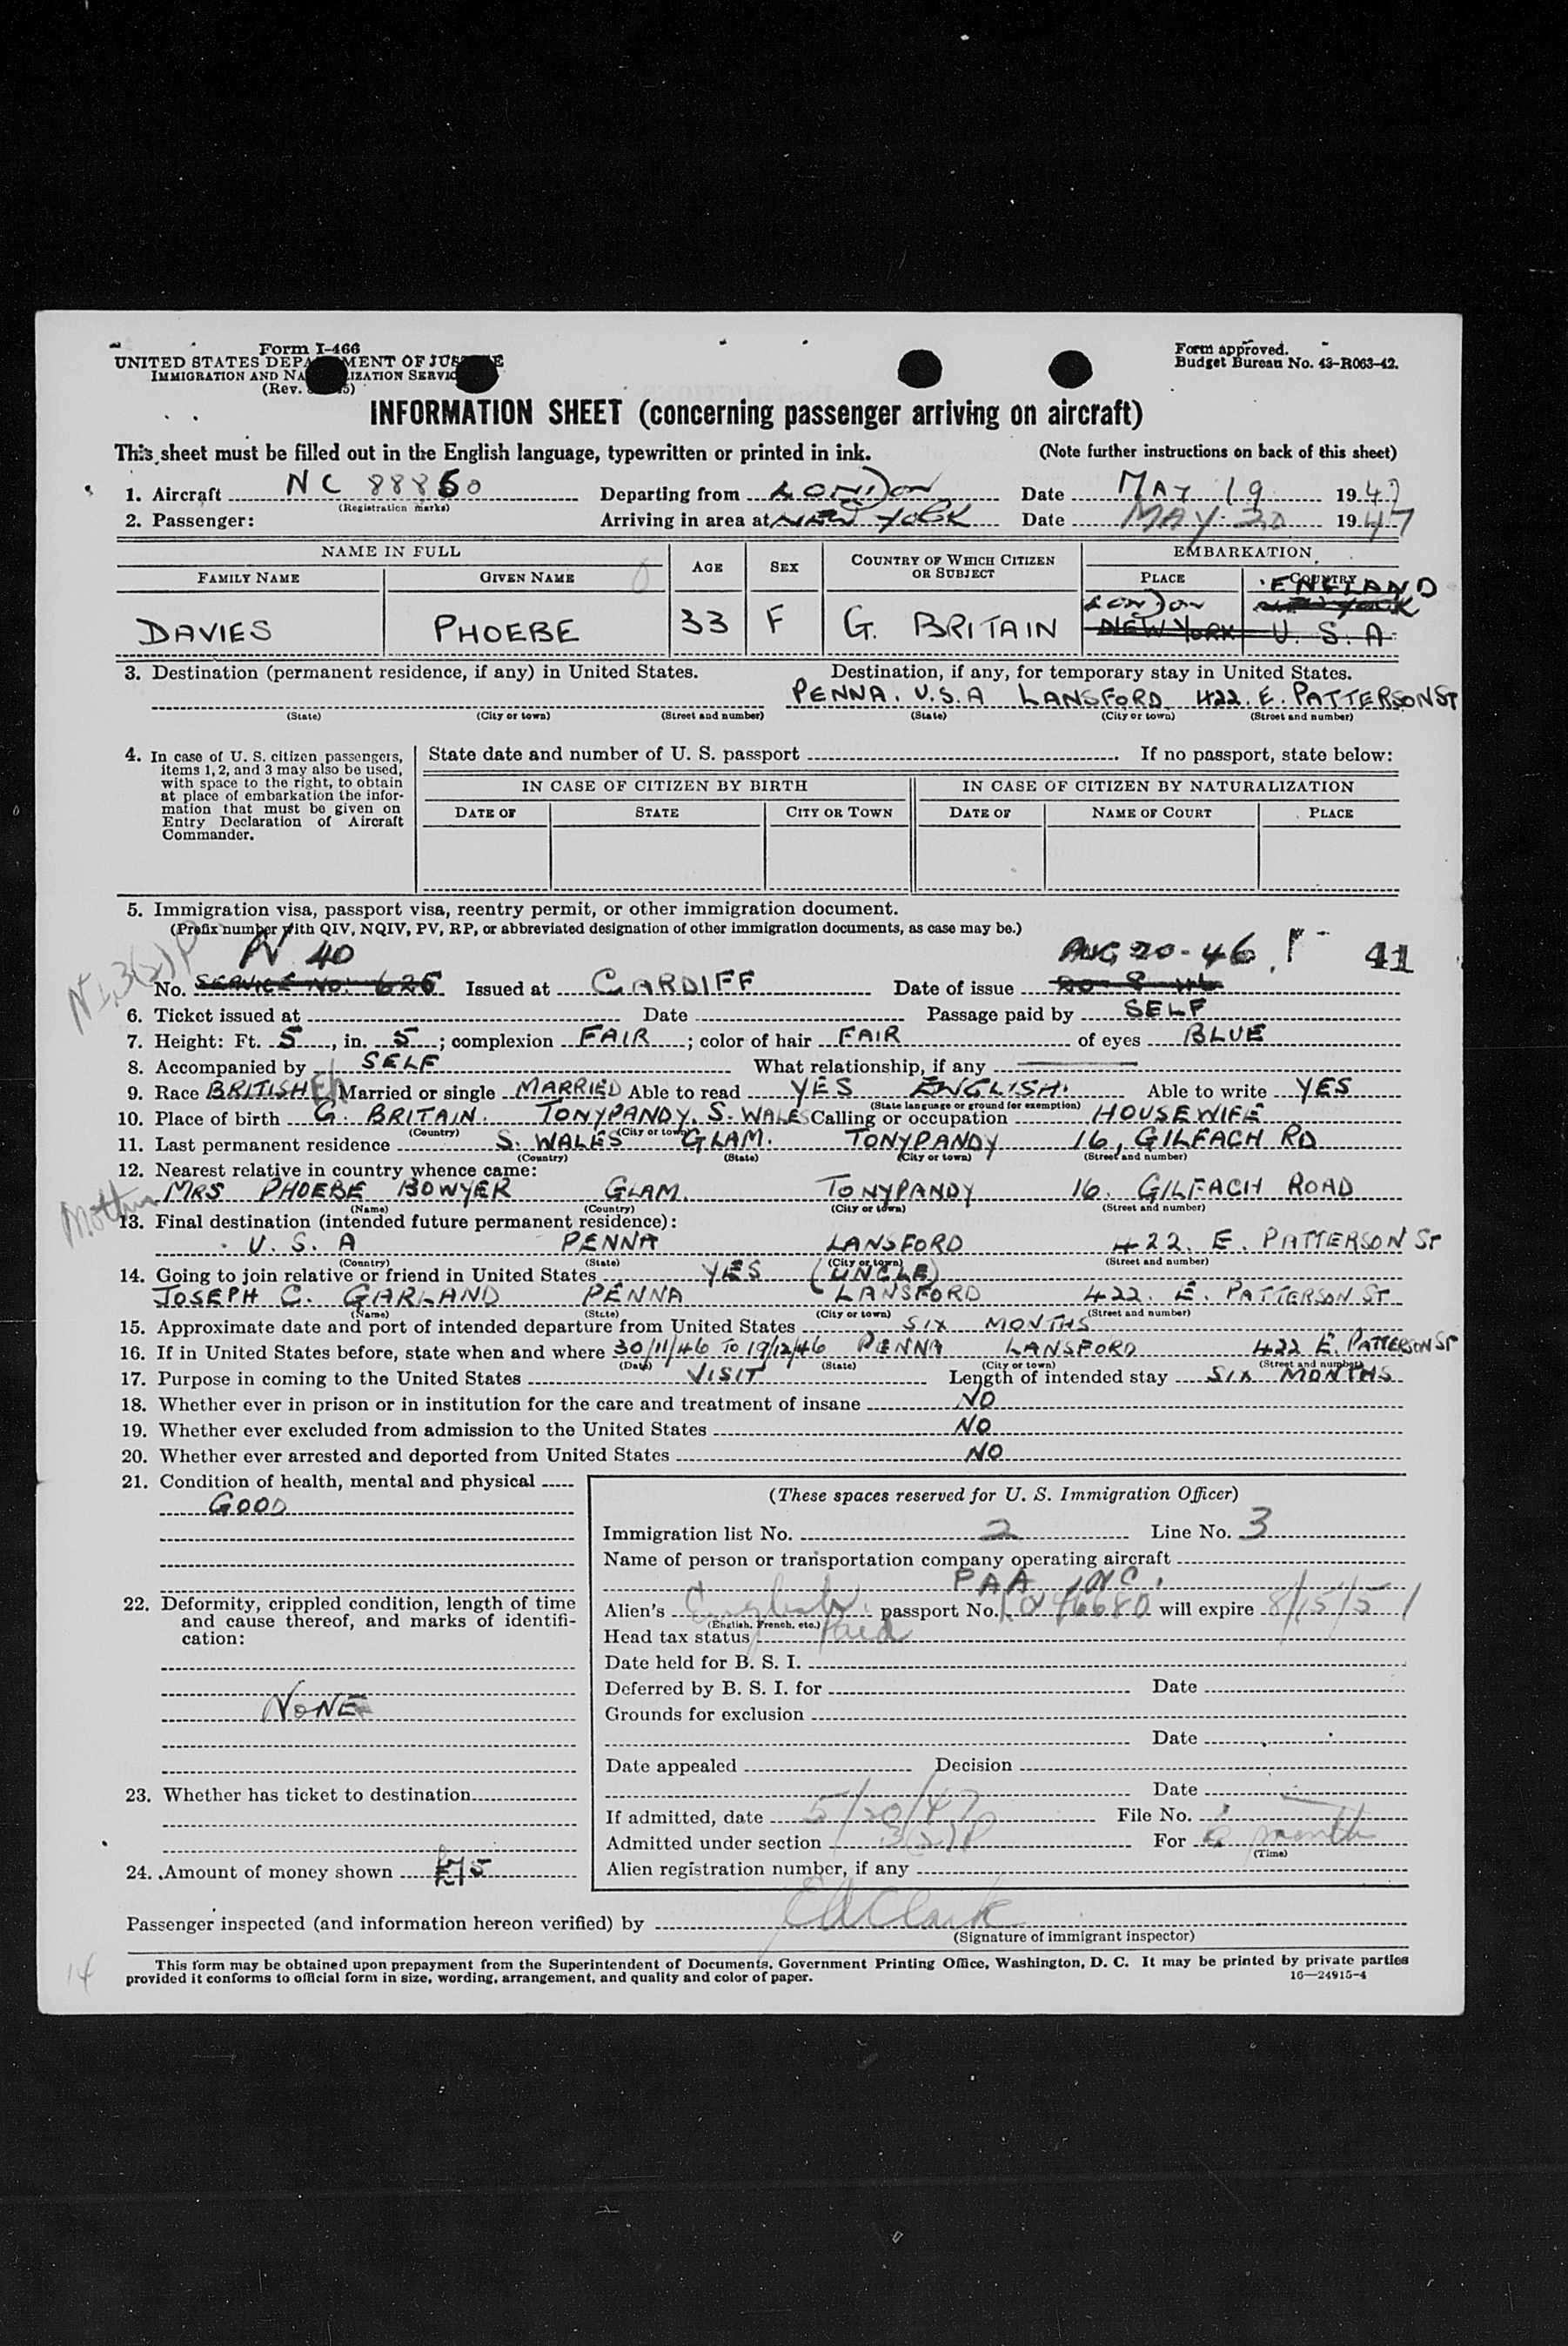 Form I-466
UNITED STATES DEPA MENT OF JUS E
IMMIGRATION AND NA IZATION SERVIC
(Rev. 5)
Form approved.
Budget Bureau No. 43-R063-42.
INFORMATION SHEET (concerning passenger arriving on aircraft)
This sheet must be filled out in the English language, typewritten or printed in ink. (Note further instructions on back of this sheet)
1. Aircraft NC 88860 Departing from LONDON Date MAY 19 1947
(Registration marks)
2. Passenger: Arriving in area at NEW YORK Date MAY 20 1947
NAME IN FULL AGE SEX COUNTRY OF WHICH CITIZEN OR SUBJECT EMBARKATION
FAMILY NAME GIVEN NAME PLACE COUNTRY
ENGLAND
LONDON NEW YORK
DAVIES PHOEBE 33 F G. BRITAIN NEW YORK U. S. A.
3. Destination (permanent residence, if any) in United States. Destination, if any, for temporary stay in United States.
PENNA. U.S.A LANSFORD 422. E. PATTERSON ST
(State) (City or town) (Street and number) (State) (City or town) (Street and number)
4. In case of U. S. citizen passengers, items 1, 2, and 3 may also be used, with space to the right, to obtain at place of embarkation the information that must be given on Entry Declaration of Aircraft Commander.
State date and number of U. S. passport . If no passport, state below:
IN CASE OF CITIZEN BY BIRTH IN CASE OF CITIZEN BY NATURALIZATION
DATE OF STATE CITY OR TOWN DATE OF NAME OF COURT PLACE
5. Immigration visa, passport visa, reentry permit, or other immigration document.
(Prefix number with QIV, NQIV, PV, RP, or abbreviated designation of other immigration documents, as case may be.)
40 AUG 20-46 41
No. SERVICE NO. 626 Issued at CARDIFF Date of issue 20-8-46
6. Ticket issued at Date Passage paid by SELF
7. Height: Ft. 5, in. 5; complexion FAIR; color of hair FAIR of eyes BLUE
8. Accompanied by SELF What relationship, if any
9. Race BRITISH Married or single MARRIED Able to read YES ENGLISH. Able to write YES
(State language or ground for exemption)
10. Place of birth G. BRITAIN. TONYPANDY. S. WALES Calling or occupation HOUSEWIFE
(Country) (City or town)
11. Last permanent residence S. WALES GLAM. TONYPANDY 16, GILFACH RD
(Country) (State) (City or town) (Street and number)
12. Nearest relative in country whence came:
Mother MRS PHOEBE BOWYER GLAM. TONYPANDY 16. GILFACH ROAD
(Name) (Country) (City or town) (Street and number)
13. Final destination (intended future permanent residence):
U. S. A PENNA LANSFORD 422. E. PATTERSON ST
(Country) (State) (City or town) (Street and number)
14. Going to join relative or friend in United States YES (UNCLE)
JOSEPH C. GARLAND PENNA LANSFORD 422. E. PATTERSON ST
(Name) (State) (City or town) (Street and number)
15. Approximate date and port of intended departure from United States SIX MONTHS
16. If in United States before, state when and where 30/11/46 TO 19/12/46 PENNA LANSFORD 422 E. PATTERSON ST
(Date) (State) (City or town) (Street and number)
17. Purpose in coming to the United States VISIT Length of intended stay SIX MONTHS
18. Whether ever in prison or in institution for the care and treatment of insane NO
19. Whether ever excluded from admission to the United States NO
20. Whether ever arrested and deported from United States NO
21. Condition of health, mental and physical
GOOD
22. Deformity, crippled condition, length of time and cause thereof, and marks of identification:
NONE
23. Whether has ticket to destination
24. Amount of money shown £75
(These spaces reserved for U. S. Immigration Officer)
Immigration list No. 2 Line No. 3
Name of person or transportation company operating aircraft
PAA INC.
Alien's English passport No. will expire 8/15/51
(English, French, etc.)
Head tax status Paid
Date held for B. S. I.
Deferred by B. S. I. for Date
Grounds for exclusion
Date
Date appealed Decision
Date
If admitted, date 5/20/47 File No.
Admitted under section 3(2)P For 6 month
(Time)
Alien registration number, if any
Passenger inspected (and information hereon verified) by EA Clark
(Signature of immigrant inspector)
14
This form may be obtained upon prepayment from the Superintendent of Documents, Government Printing Office, Washington, D. C. It may be printed by private parties
provided it conforms to official form in size, wording, arrangement, and quality and color of paper. 16—24915-4